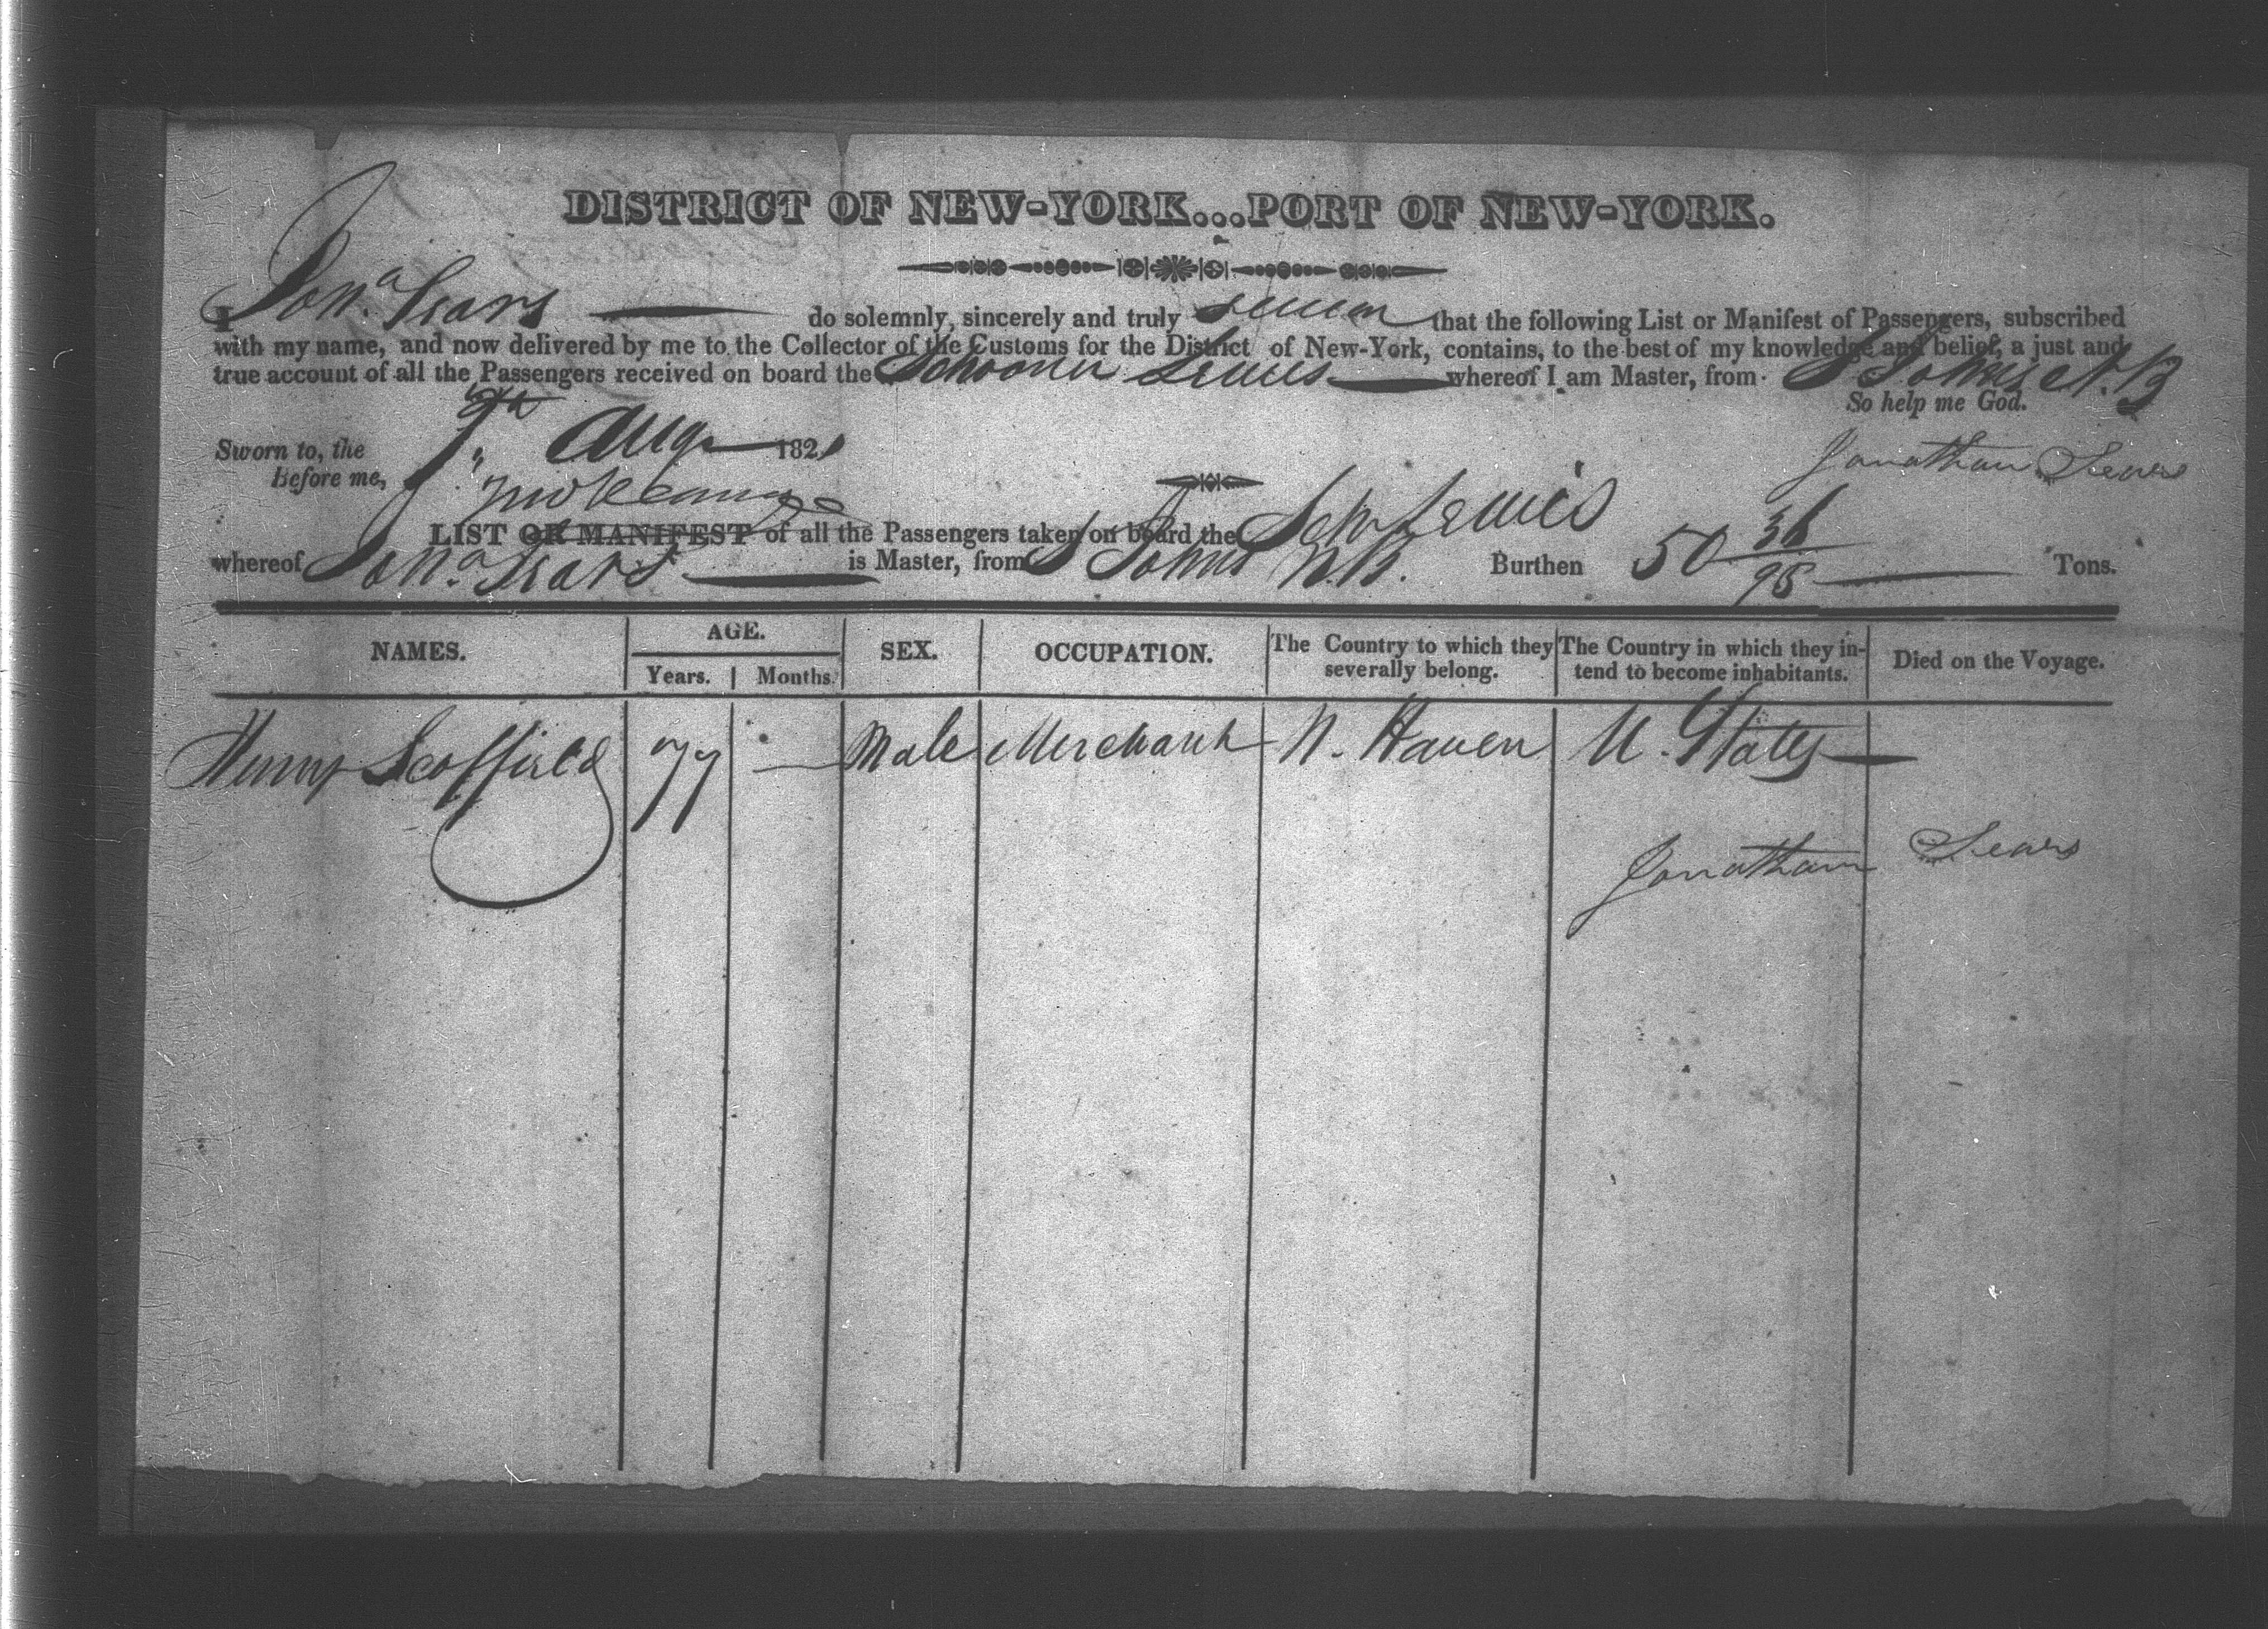 DISTRICT OF NEW-YORK...PORT OF NEW-YORK.
I Jona. Sears do solemnly, sincerely and truly swear that the following List or Manifest of Passengers, subscribed
with my name, and now delivered by me to the Collector of the Customs for the District of New-York, contains, to the best of my knowledge and belief, a just and
true account of all the Passengers received on board the Schooner Lewis whereof I am Master, from St Johns N.B
So help me God.
Sworn to, the Aug 1821
Jonathan Sears
Before me,
LIST OR MANIFEST of all the Passengers taken on board the Schr Lewis
whereof Jona. Sears is Master, from St Johns N.B. Burthen 50 36/95 Tons.
NAMES. AGE. SEX. OCCUPATION. The Country to which they severally belong. The Country in which they intend to become inhabitants. Died on the Voyage.
Years. Months.
Henry Scoffield 77 — Male Merchant N. Haven U. States —
Jonathan Sears